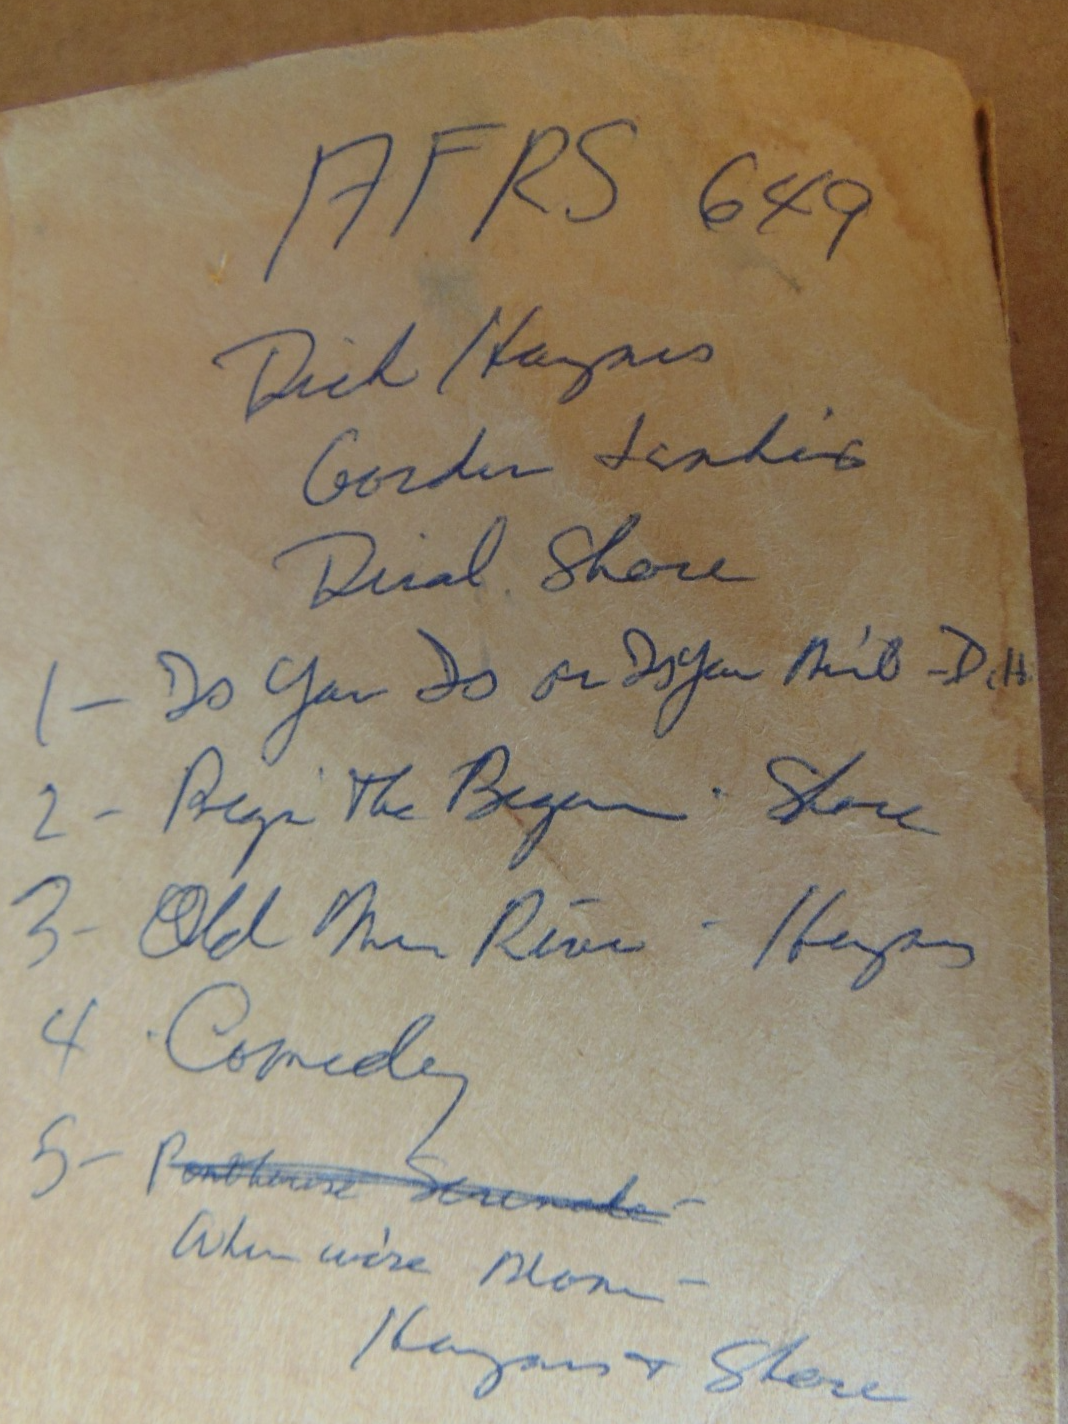 AFRS 649
Dick Haymes
Gordon Jenkins
Dinah Shore
1- Is You Is or Is You Ain't - D.H.
2- Begin The Beguine - Shore
3- Old Man River - Haymes
4 - Comedy
5- Penthouse Serenade -
When we're Alone -
Haymes + Shore